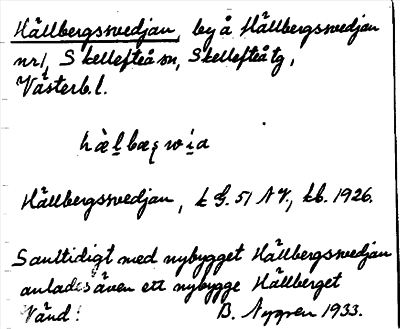 Hällbergssvedjan, beg å Hällbergsvedjan
nr 1, Skellefteå sn, Skellefteå tg,
Västerb. l.
hällbærswia
Hällbergssvedjan, k G. 51 NV, kb. 1926.
Samtidigt med nybygget Hällbergssvedjan
anlades även ett nybygge Hällberget
B. Nygren 1933.